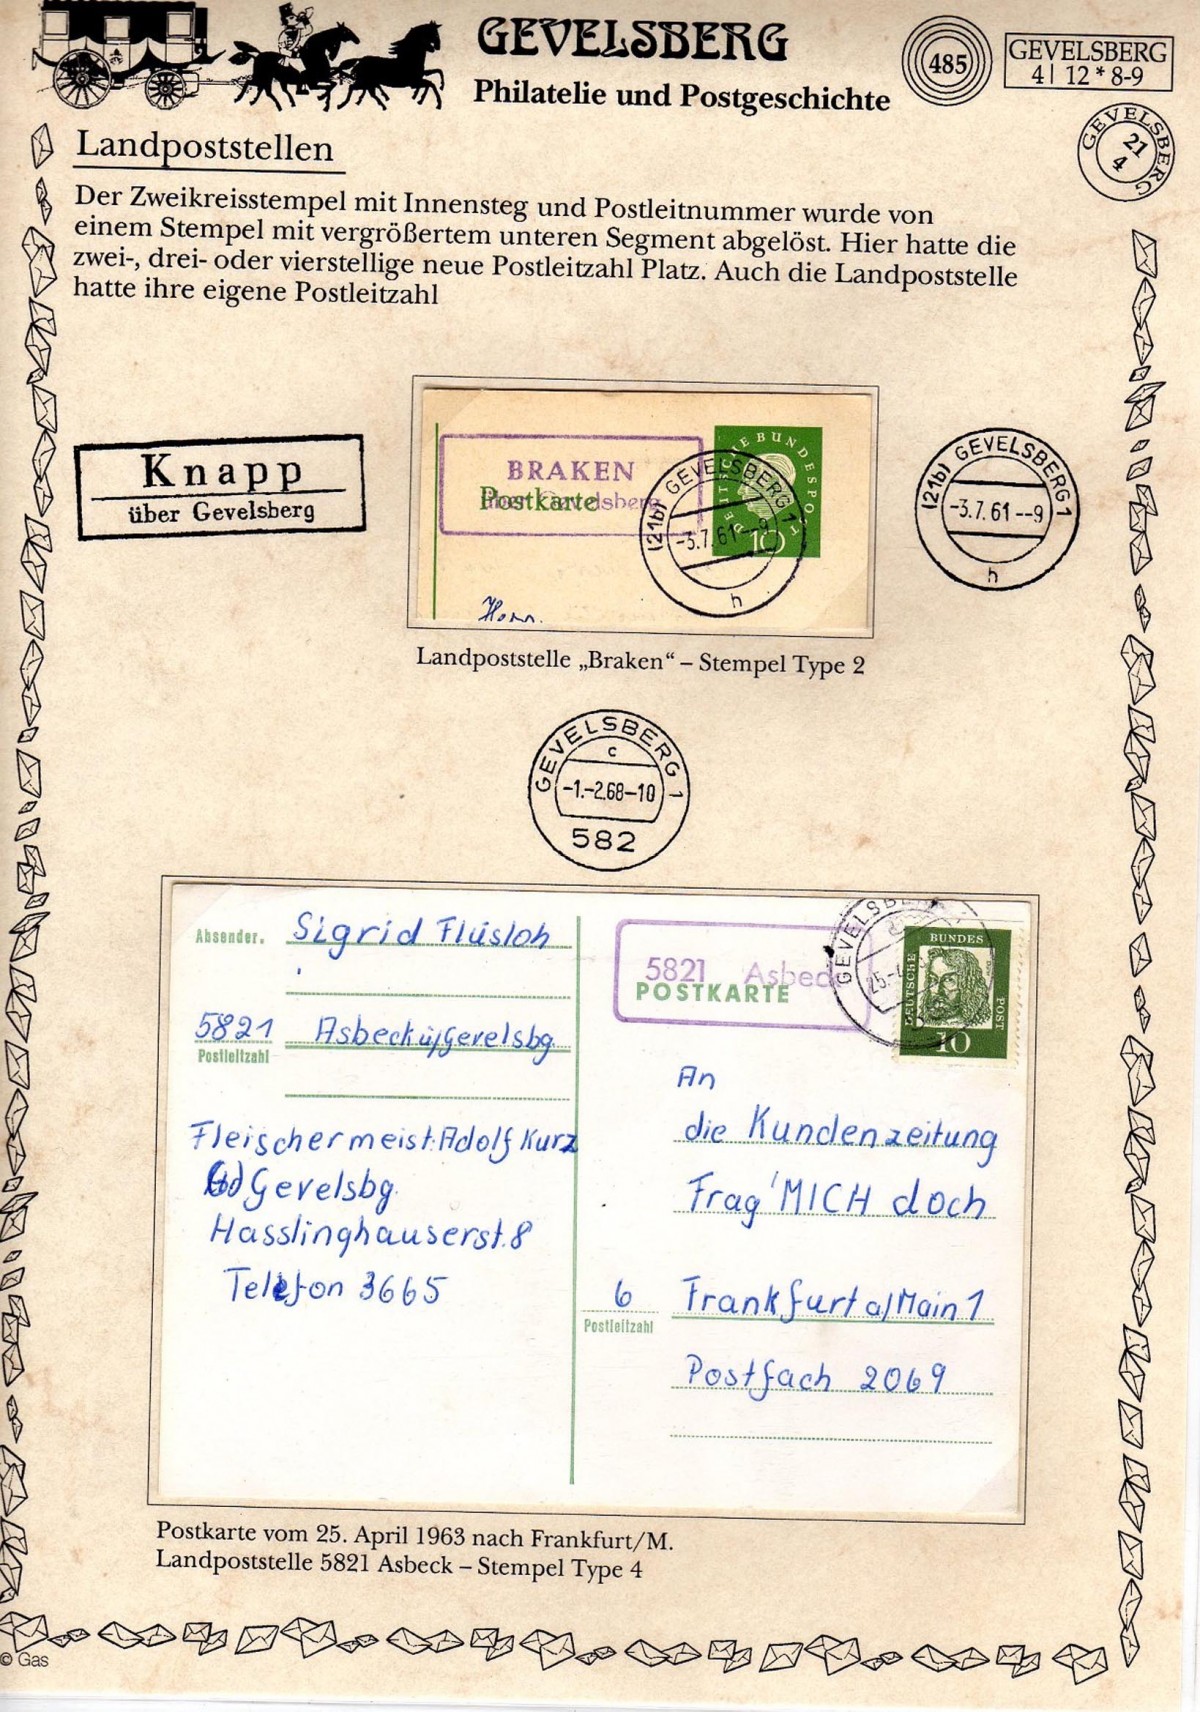 GEVELSBERG
Philatelie und Postgeschichte
485
GEVELSBERG
4| 12 * 8-9
GEVELSBERG
21
4
Landpoststellen
Der Zweikreisstempel mit Innensteg und Postleitnummer wurde von
einem Stempel mit vergrößertem unteren Segment abgelöst. Hier hatte die
zwei-, drei- oder vierstellige neue Postleitzahl Platz. Auch die Landpoststelle
hatte ihre eigene Postleitzahl
Knapp
über Gevelsberg
BRAKEN
über Gevelsberg
Postkarte
DEUTSCHE BUNDESPOST
10
(21b) GEVELSBERG 1
-3.7.61--9
h
Horn.
(21b) GEVELSBERG 1
-3.7.61--9
h
Landpoststelle „Braken“ – Stempel Type 2
GEVELSBERG 1
c
-1.-2.68-10
582
Absender.
Sigrid Flüsloh
5821 Asbeck ü/Gevelsbg.
Postleitzahl
Fleischermeist. Adolf Kurz
Gevelsbg.
Hasslinghauserst. 8
Telefon 3665
5821 Asbeck
POSTKARTE
GEVELSBERG
25.-4.
DEUTSCHE BUNDES POST
10
An
die Kundenzeitung
Frag'MICH doch
6 Frankfurt a/Main 1
Postleitzahl
Postfach 2069
Postkarte vom 25. April 1963 nach Frankfurt/M.
Landpoststelle 5821 Asbeck – Stempel Type 4
© Gas